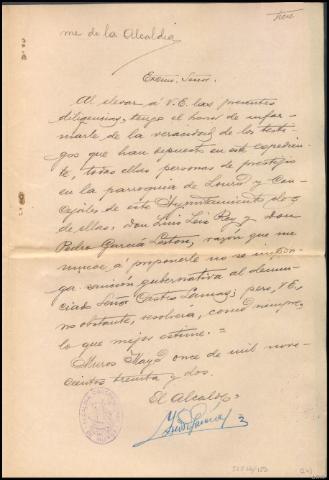 Trece
me de la Alcaldia
Excmo. Señor.
Al elevar á V.E. las presentes
diligencias, tengo el honor de infor-
marle de la veracidad de los testi-
gos que han depuesto en este expedien-
te, todas ellas personas de prestigio
en la parroquia de Louro y Con-
cejales de este Ayuntamiento dos
de ellas, don Luis Leis Rey y don
Pedro García Lestón, razón que me
mueve á proponerle no se impon-
ga sanción gubernativa al denun-
ciado Señor Castro Lamas; pero, V.E,
no obstante, resolverá, como siempre,
lo que mejor estime.=
Muros Mayo once de mil nove-
cientos treinta y dos.
El Alcalde,